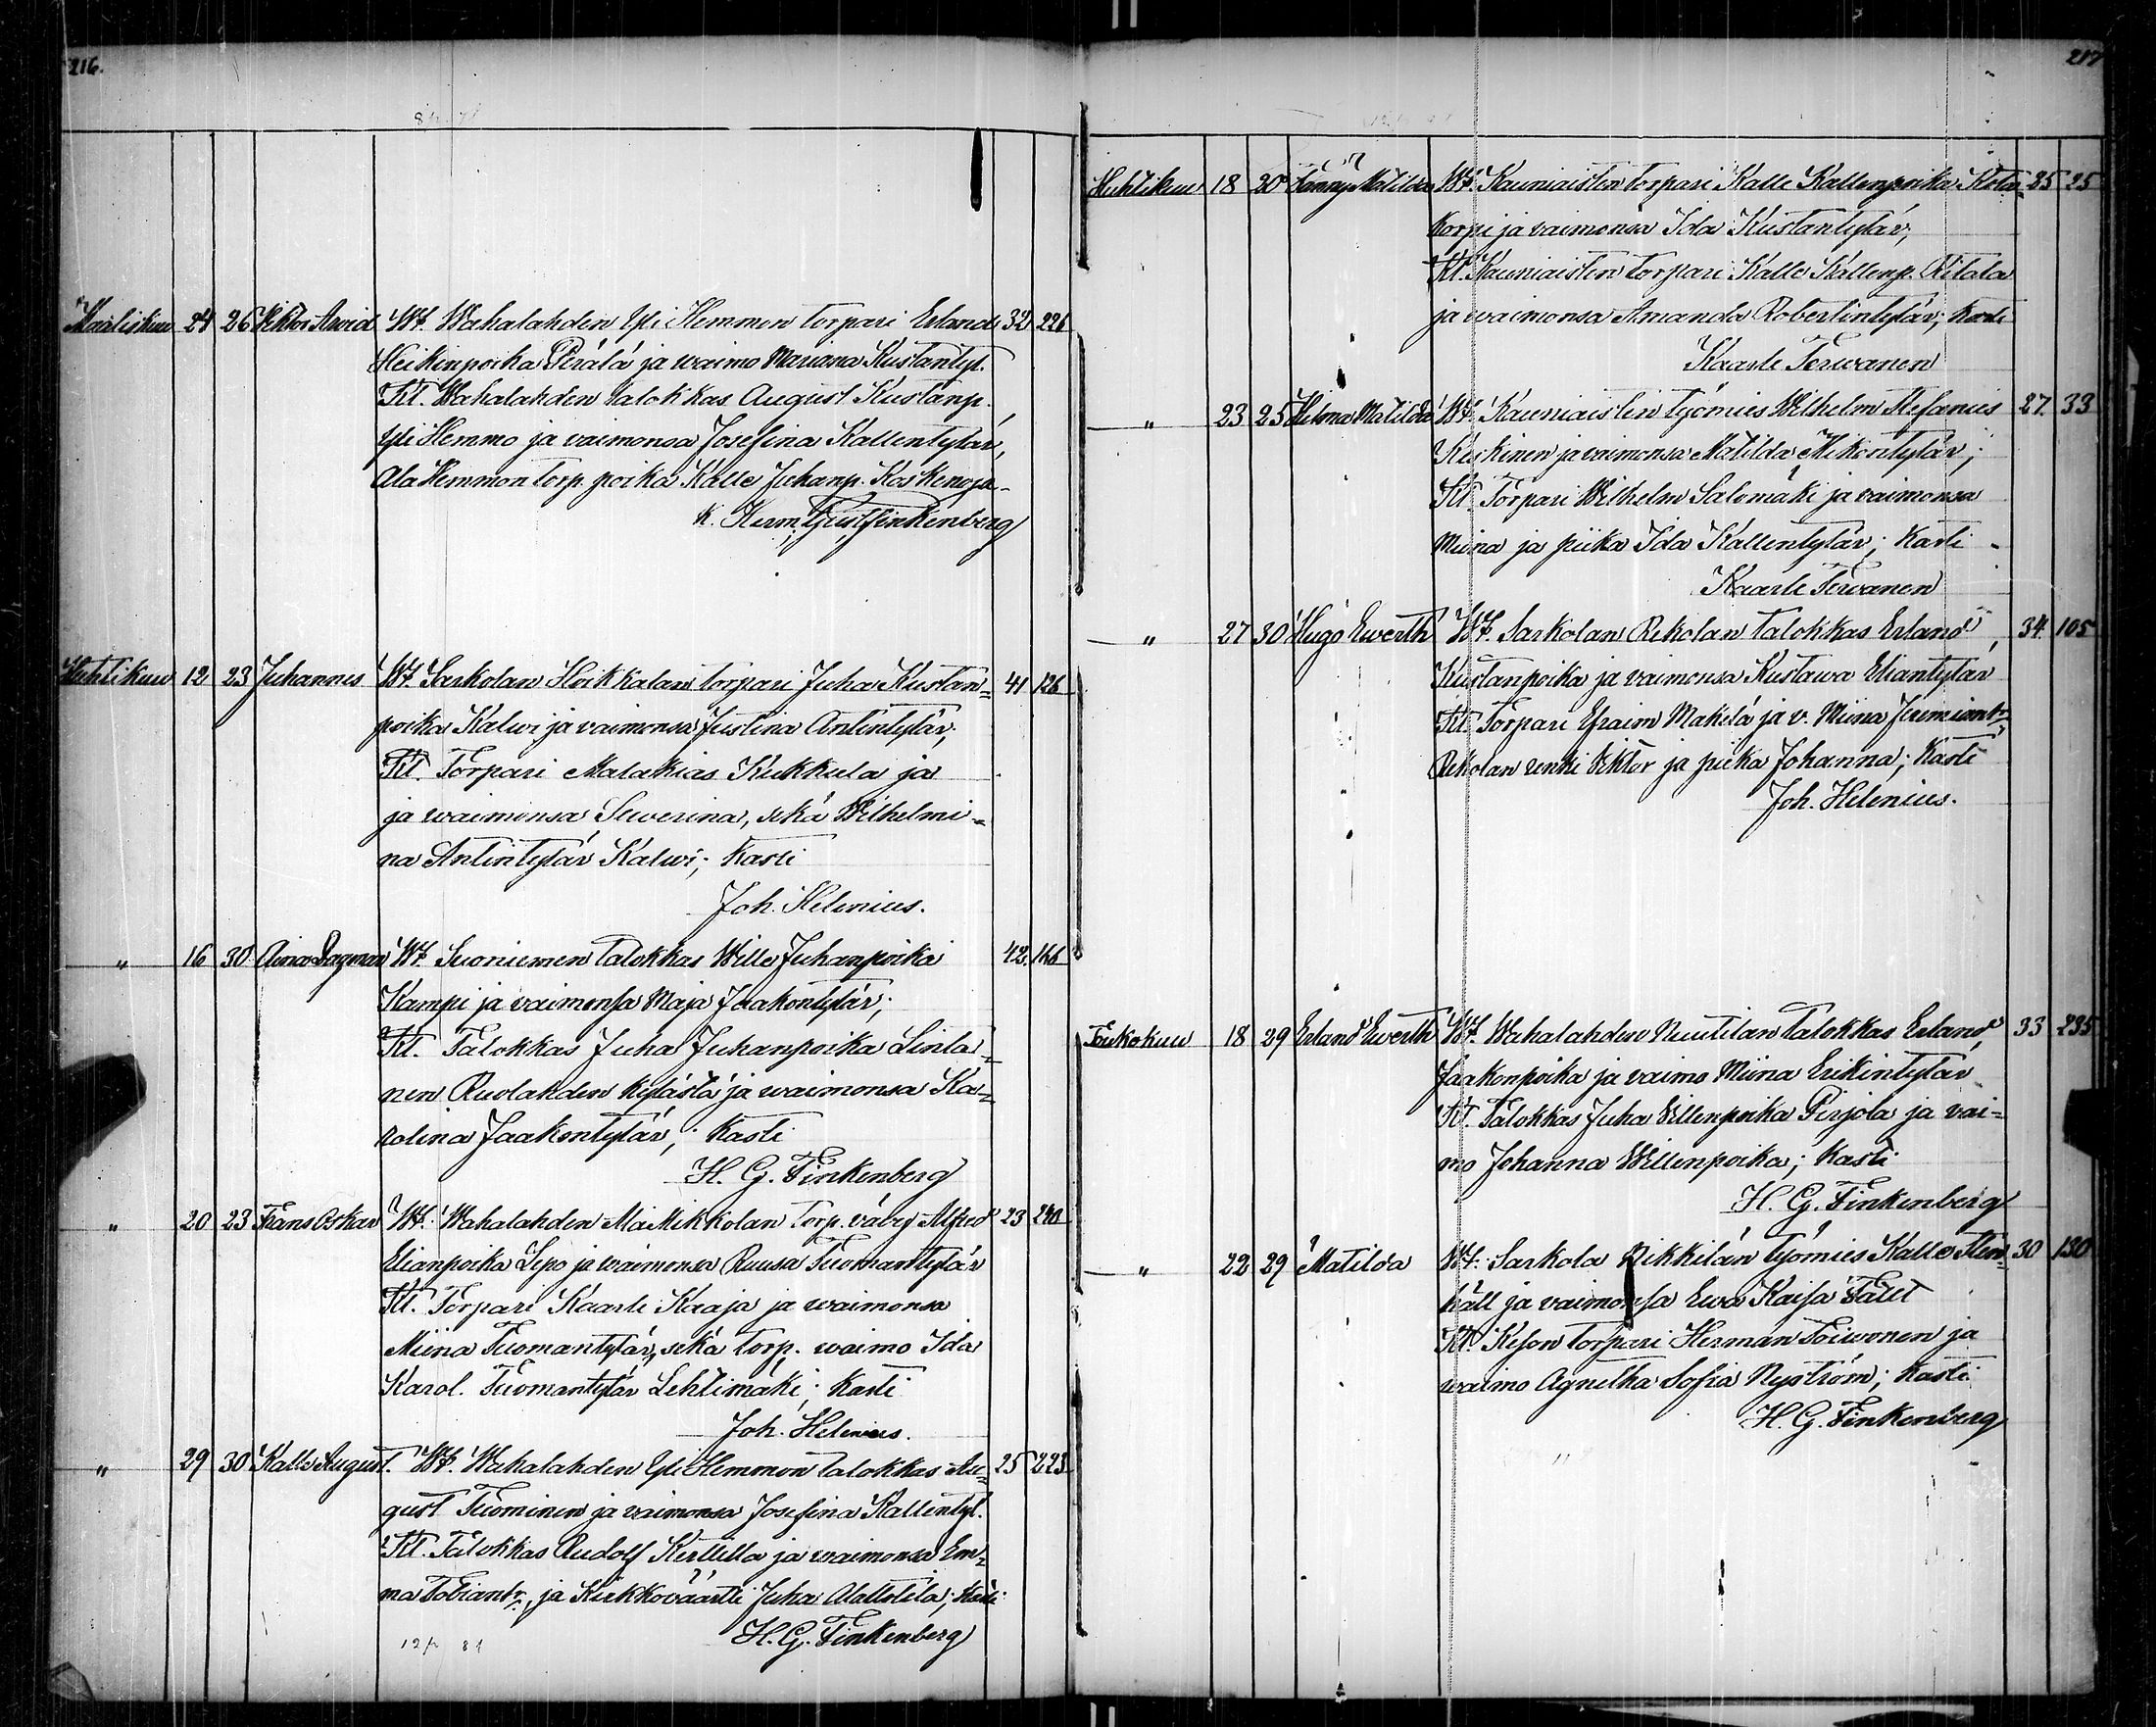 216.
Maaliskuu 24 26 Viktor Arvid Wt. Wahalahden Yli Hemmon torpari Erland 32 226
Heikinpoika Perälä ja waimo Mariana Kustantyt.
Kt. Wahalahden talokkas August Kustanp.
Yli Hemmo ja vaimonsa Josefina Kallentytär,
Ala Hemmon torp. poika Kalle Juhanp. Koskenoja
K. Herm. Gust. Finkenberg
Huhtikuu 12 23 Juhannes Wt. Sarkolan Hoikkalan torpari Juha Kustan= 41 126
poika Kalwi ja vaimonsa Justina Antintytär;
Kt. Torpari Malakias Kukkula ja
ja waimonsa Sewerina, sekä Wilhelmi=
na Antintytär Kalwi; Kasti
Joh. Helenius.
" 16 30 Aina Dagmar Wt. Suoniemen talokkas Wille Juhanpoika 42 166
Kampi ja vaimonsa Maja Jaakontytär;
Kt. Talokkas Juha Juhanpoika Linta=
nen Ruolahden kylästä ja waimonsa Ka=
rolina Jaakontytär; Kasti
H. G. Finkenberg
" 20 23 Frans Oskar Wt. Wahalahden Mikkolan torp. Alfred 23 240
Elianpoika Lepo ja waimonsa Ruusa Tuomantytär
Kt. Torpari Kaarle Kaaja ja waimonsa
Miina Tuomantytär, sekä torp. waimo Ida
Karol. Tuomantytär Lehtimäki; Kasti
Joh. Helenius.
" 29 30 Kalle August. Wt. Wahalahden Yli Hemmon talokkas Au= 25 223
gust Tuominen ja vaimonsa Josefina Kallentyt.
Kt. Talokkas Rudolf Kerttilla ja waimonsa Em=
ma Tobiantr, ja Kirkkoväärti Juha Alattila; Kasti
H. G. Finkenberg
217
Huhtikuu 18 20 Fanny Matilda Wt. Kauniaisten torpari Kalle Kallenpoika Kota= 25 25
korpi ja vaimonsa Ida Kustantytär;
Kt. Kauniaisten torpari Kalle Kallenp. Ritala
ja waimonsa Amanda Robertintytär; Kasti
Kaarle Terwanen
" 23 25 Hilma Matilda Wt. Kauniaisten työmies Wilhelm Stefanus 27. 33
Keskinen ja vaimonsa Matilda Mikontytär;
Kt. Torpari Wilhelm Salomäki ja vaimonsa
Miina ja piika Ida Kallentytär; Kasti
Kaarle Terwanen
" 27 30 Hugo Ewerth Wt. Sarkolan Rekolan talokkas Erland 34. 105
Kustanpoika ja vaimonsa Kustawa Eliantytär
Kt. Torpari Efraim Mäkelä ja v. Miina Jeremiantr
Rekolan renki Viktor ja piika Johanna; Kasti
Joh. Helenius.
Toukokuu 18 29 Erland Ewerth Wt. Wahalahden Nuutilan Talokkas Erland 33 235
Jaakonpoika ja vaimo Miina Erikintytär
Kt. Talokkas Juha Villenpoika Pirjola ja vai=
mo Johanna Willenpoika; Kasti
H. G. Finkenberg
" 22 29 Matilda Wt. Sarkola Rikkilän työmies Kalle Sten= 30 130
häll ja vaimonsa Ewa Kaisa Fält
Kt. Keson torpari Herman Toiwonen ja
waimo Agnetha Sofia Nyström; Kasti
H. G. Finkenberg